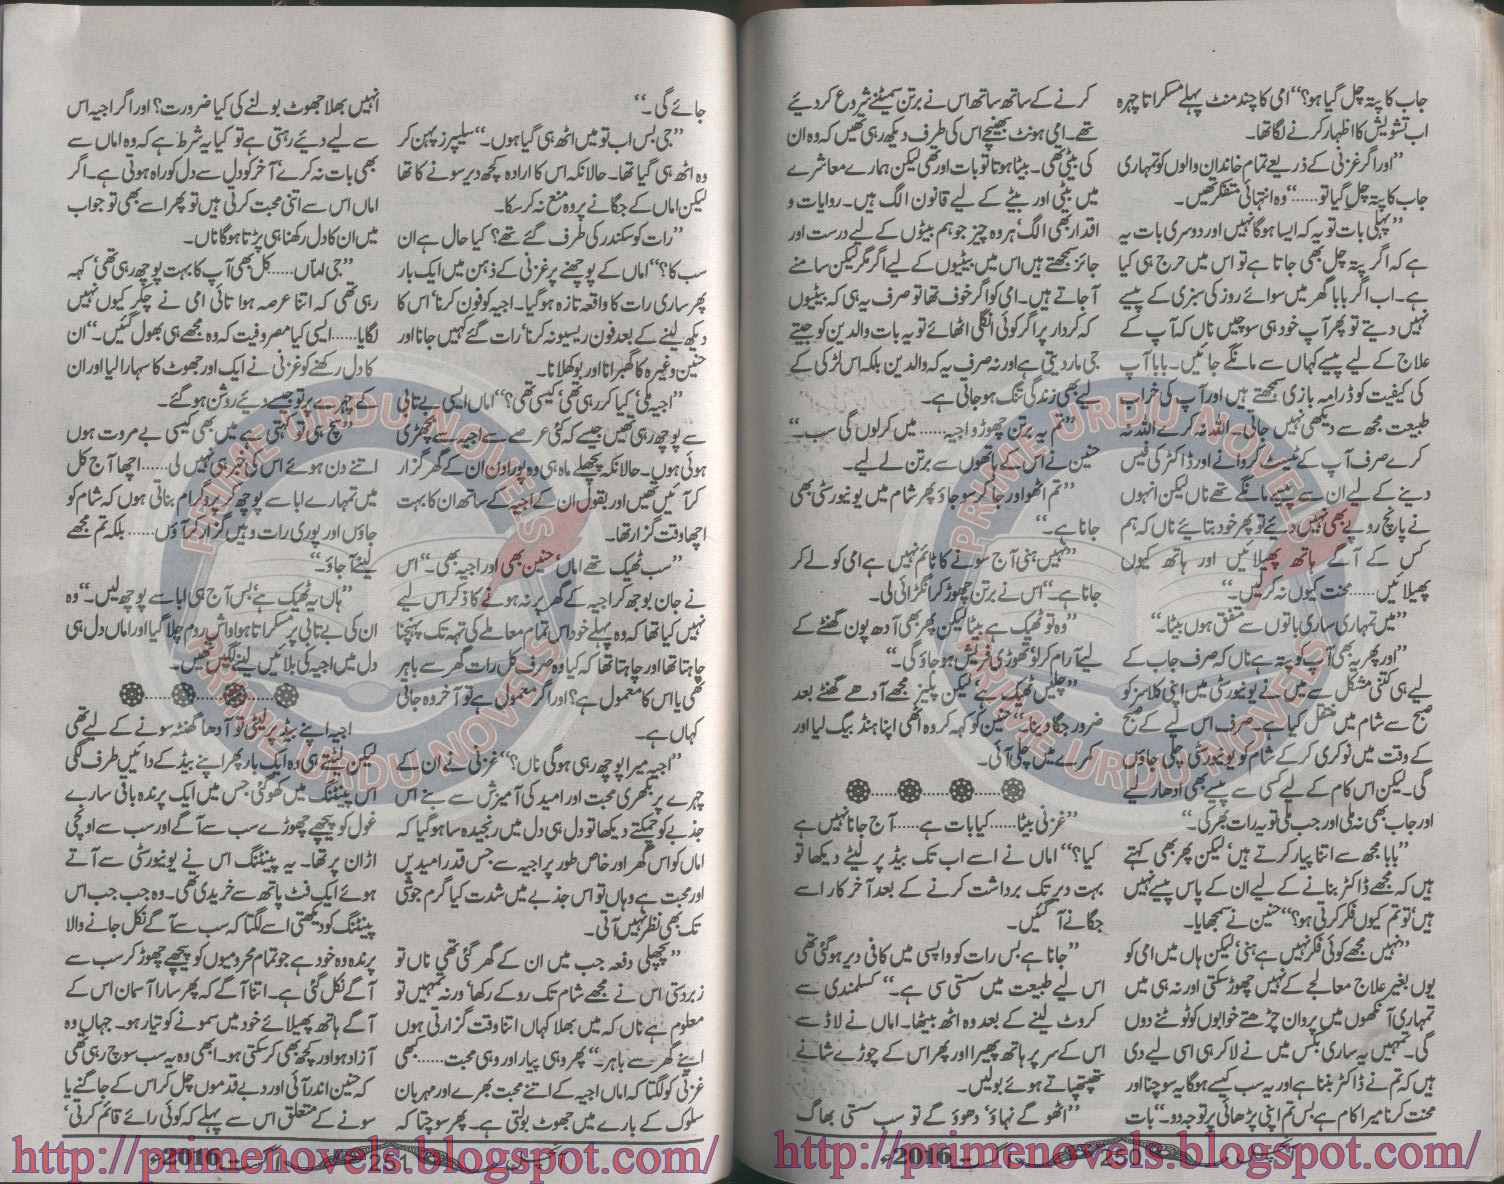 جاب کا پتہ چل گیا ہو؟“ امی کا چند منٹ پہلے مسکراتا چہرہ
اب تشویش کا اظہار کرنے لگا تھا۔
”اور اگر غزنی کے ذریعے تمام خاندان والوں کو تمہاری
جاب کا پتہ چل گیا تو......“ وہ انتہائی متفکر تھیں۔
”پہلی بات تو یہ کہ ایسا ہوگا نہیں اور دوسری بات یہ
ہے کہ اگر پتہ چل بھی جاتا ہے تو اس میں حرج ہی کیا
ہے۔ اب اگر بابا گھر میں سوائے روز کی سبزی کے پیسے
نہیں دیتے تو پھر آپ خود ہی سوچیں ناں کہ آپ کے
علاج کے لیے پیسے کہاں سے مانگے جائیں۔ بابا آپ
کی کیفیت کو ڈرامہ بازی سمجھتے ہیں اور آپ کی خراب
طبیعت مجھ سے دیکھی نہیں جاتی۔ اللہ نہ کرے اللہ نہ
کرے صرف آپ کے ٹیسٹ کروانے اور ڈاکٹر کی فیس
دینے کے لیے ان سے پیسے مانگے تھے ناں لیکن انہوں
نے پانچ روپے بھی نہیں دئے تو پھر خود بتائیے ناں کہ ہم
کس کے آگے ہاتھ پھیلائیں اور ہاتھ کیوں
پھیلائیں...... محنت کیوں نہ کریں۔“
”میں تمہاری ساری باتوں سے متفق ہوں بیٹا۔“
”اور پھر یہ بھی آپ کو پتہ ہے ناں کہ صرف جاب کے
لیے ہی کتنی مشکل سے میں نے یونیورسٹی میں اپنی کلاسز کو
صبح سے شام میں منتقل کیا ہے۔ صرف اس لیے کہ صبح
کے وقت میں نوکری کر کے شام کو یونیورسٹی چلی جاؤں
گی۔ لیکن اس کام کے لیے کسی سے پیسے بھی ادھار لیے
اور جاب بھی نہ ملی اور جب ملی تو یہ رات بھر کی۔“
”بابا مجھ سے اتنا پیار کرتے ہیں، لیکن پھر بھی کہتے
ہیں کہ مجھے ڈاکٹر بنانے کے لیے ان کے پاس پیسے نہیں
ہیں، تو تم کیوں فکر کرتی ہو؟“ حنین نے سمجھایا۔
”نہیں مجھے کوئی فکر نہیں ہے ہنی، لیکن ہاں میں امی کو
یوں بغیر علاج معالجے کے نہیں چھوڑ سکتی اور نہ ہی میں
تمہاری آنکھوں میں پروان چڑھتے خوابوں کو ٹوٹنے دوں
گی۔ تمہیں یہ ساری بکس میں نے لا کر ہی اسی لیے دی
ہیں کہ تم نے ڈاکٹر بننا ہے اور یہ سب کیسے ہوگا یہ سوچنا اور
محنت کرنا میرا کام ہے بس تم اپنی پڑھائی پر توجہ دو۔“ بات
کرنے کے ساتھ ساتھ اس نے برتن سمیٹنے شروع کر دیئے
تھے۔ امی ہونٹ بھینچے اس کی طرف دیکھ رہی تھیں کہ وہ ان
کی بیٹی تھی۔ بیٹا ہوتا تو بات اور تھی لیکن ہمارے معاشرے
میں بیٹی اور بیٹے کے لیے قانون الگ ہیں۔ روایات و
اقدار بھی الگ، ہر وہ چیز جو ہم بیٹوں کے لیے درست اور
جائز سمجھتے ہیں اس میں بیٹیوں کے لیے اگر مگر لیکن سامنے
آ جاتے ہیں۔ امی کو اگر خوف تھا تو صرف یہ ہی کہ بیٹیوں
کے کردار پر اگر کوئی انگلی اٹھائے تو یہ بات والدین کو جیتے
جی مار دیتی ہے اور نہ صرف یہ کہ والدین بلکہ اس لڑکی کے
لیے بھی زندگی تنگ ہو جاتی ہے۔
”تم یہ برتن چھوڑو اجیہ...... میں کرلوں گی سب۔“
حنین نے اس کے ہاتھوں سے برتن لے لیے۔
”تم اٹھو اور جا کر سو جاؤ پھر شام میں یونیورسٹی بھی
جانا ہے۔“
”نہیں ہنی آج سونے کا ٹائم نہیں ہے امی کو لے کر
جانا ہے۔“ اس نے برتن چھوڑ کر انگڑائی لی۔
”وہ تو ٹھیک ہے بیٹا لیکن پھر بھی آدھ پون گھنٹے کے
لیے آرام کر لو، تھوڑی فریش ہو جاؤ گی۔“
”چلیں ٹھیک ہے، لیکن پلیز مجھے آدھے گھنٹے بعد
ضرور جگا دینا۔“ حنین کو کہہ کر وہ اٹھی اپنا ہینڈ بیگ لیا اور
کمرے میں چلی آئی۔
”غزنی بیٹا...... کیا بات ہے...... آج جانا نہیں ہے
کیا؟“ اماں نے اسے اب تک بیڈ پر لیٹے دیکھا تو
بہت دیر تک برداشت کرنے کے بعد آخر کار اسے
جگانے آ گئیں۔
”جانا ہے بس رات کو واپسی میں کافی دیر ہو گئی تھی
اس لیے طبیعت میں سستی سی ہے۔“ کسلمندی سے
کروٹ لینے کے بعد وہ اٹھ بیٹھا۔ اماں نے لاڈ سے
اس کے سر پر ہاتھ پھیرا اور پھر اس کے چوڑے شانے
تھپتھپاتے ہوئے بولیں۔
”اٹھو گے نہاؤ، دھوؤ گے تو سب سستی بھاگ
آنچل 250 اگست 2016ء
جائے گی۔“
”جی بس اب تو میں اٹھ ہی گیا ہوں۔“ سلیپرز پہن کر
وہ اٹھ ہی گیا تھا۔ حالانکہ اس کا ارادہ کچھ دیر سونے کا تھا
لیکن اماں کے جگانے پر وہ منع نہ کر سکا۔
”رات کو سکندر کی طرف گئے تھے؟ کیا حال ہے ان
سب کا؟“ اماں کے پوچھنے پر غزنی کے ذہن میں ایک بار
پھر ساری رات کا واقعہ تازہ ہو گیا۔ اجیہ کو فون کرنا، اس کا
دیکھ لینے کے بعد فون ریسیو نہ کرنا، رات گئے کہیں جانا اور
حنین وغیرہ کا گھبرانا اور بوکھلانا۔
”اجیہ ملی، کیا کر رہی تھی، کیسی تھی؟“ اماں ایسی بے تابی
سے پوچھ رہی تھیں جیسے کہ کئی عرصے سے اجیہ سے بچھڑی
ہوئی ہوں۔ حالانکہ پچھلے ماہ ہی وہ پورا دن ان کے گھر گزار
کر آئیں تھیں اور بقول ان کے اجیہ کے ساتھ ان کا بہت
اچھا وقت گزارا تھا۔
”سب ٹھیک تھے اماں، حنین بھی اور اجیہ بھی۔“ اس
نے جان بوجھ کر اجیہ کے گھر پر نہ ہونے کا ذکر اس لیے
نہیں کیا تھا کہ وہ پہلے خود اس تمام معاملے کی تہہ تک پہنچنا
چاہتا تھا اور چاہتا تھا کہ کیا وہ صرف کل رات گھر سے باہر
تھی یا اس کا معمول ہے؟ اور اگر معمول ہے تو آخر وہ جاتی
کہاں ہے۔
”اجیہ میرا پوچھ رہی ہوگی ناں؟“ غزنی نے ان کے
چہرے پر بکھری محبت اور امید کی آمیزش سے بنے اس
جذبے کو چمکتے دیکھا تو دل ہی دل میں رنجیدہ سا ہو گیا کہ
اماں کو اس گھر اور خاص طور پر اجیہ سے جس قدر امیدیں
اور محبت ہے وہاں تو اس جذبے میں شدت کیا گرم جوشی
تک بھی نظر نہیں آتی۔
”پچھلی دفعہ جب میں ان کے گھر گئی تھی ناں تو
زبردستی اس نے مجھے شام تک روکے رکھا، ورنہ تمہیں تو
معلوم ہے ناں کہ میں بھلا کہاں اتنا وقت گزارتی ہوں
اپنے گھر سے باہر۔“ پھر وہی پیار اور وہی محبت...... کبھی
غزنی کو لگتا کہ اماں اجیہ کے اتنے محبت بھرے اور مہربان
سلوک کے بارے میں جھوٹ بولتی ہے۔ پھر سوچتا کہ
انہیں بھلا جھوٹ بولنے کی کیا ضرورت؟ اور اگر اجیہ اس
سے لیے دیئے رہتی ہے تو کیا یہ شرط ہے کہ وہ اماں سے
بھی بات نہ کرے، آخر کو دل سے دل کو راہ ہوتی ہے۔ اگر
اماں اس سے اتنی محبت کرتی ہیں تو پھر اسے بھی تو جواب
میں ان کا دل رکھنا ہی پڑتا ہوگا ناں۔
”جی اماں...... کل بھی آپ کا بہت پوچھ رہی تھی، کہہ
رہی تھی کہ اتنا عرصہ ہوا تائی امی نے چکر کیوں نہیں
لگایا...... ایسی کیا مصروفیت کہ وہ مجھے ہی بھول گئیں۔“ ان
کا دل رکھنے کو غزنی نے ایک اور جھوٹ کا سہارا لیا اور ان
کے چہرے پر تو جیسے دیئے روشن ہو گئے۔
”سچ ہی تو کہتی ہے میں بھی کیسی بے مروت ہوں
اتنے دن ہوئے اس کی خبر ہی نہیں لی...... اچھا آج کل
میں تمہارے ابا سے پوچھ کر پروگرام بناتی ہوں کہ شام کو
جاؤں اور پوری رات وہیں گزار کر آؤں...... بلکہ تم مجھے
لینے آ جاؤ۔“
”ہاں یہ ٹھیک ہے، بس آج ہی ابا سے پوچھ لیں۔“ وہ
ان کی بے تابی پر مسکراتا ہوا واش روم چلا گیا اور اماں دل ہی
دل میں اجیہ کی بلائیں لینے لگیں تھیں۔
اجیہ اپنے بیڈ پر لیٹی تو آدھا گھنٹہ سونے کے لیے تھی
لیکن لیٹتے ہی وہ ایک بار پھر اپنے بیڈ کے دائیں طرف لگی
اس پینٹنگ میں کھو گئی، جس میں ایک پرندہ باقی سارے
غول کو پیچھے چھوڑے سب سے آگے اور سب سے اونچی
اڑان پر تھا۔ یہ پینٹنگ اس نے یونیورسٹی سے آتے
ہوئے ایک فٹ پاتھ سے خریدی تھی۔ وہ جب جب اس
پینٹنگ کو دیکھتی اسے لگتا کہ سب سے آگے نکل جانے والا
پرندہ وہ خود ہے جو تمام محرومیوں کو پیچھے چھوڑ کر سب سے
آگے نکل گئی ہے۔ اتنا آگے کہ پھر سارا آسمان اس کے
آگے ہاتھ پھیلائے خود میں سمونے کو تیار ہو۔ جہاں وہ
آزاد ہو اور کچھ بھی کر سکتی ہو۔ ابھی وہ یہ سب سوچ رہی تھی
کہ حنین اندر آئی اور دبے قدموں چل کر اس کے جاگنے یا
سونے کے متعلق اس سے پہلے کہ کوئی رائے قائم کرتی،
آنچل 251 اگست 2016ء
PRIME URDU NOVELS
PRIME URDU NOVELS
PRIME URDU NOVELS
PRIME URDU NOVELS
http://primenovels.blogspot.com/
http://primenovels.blogspot.com/